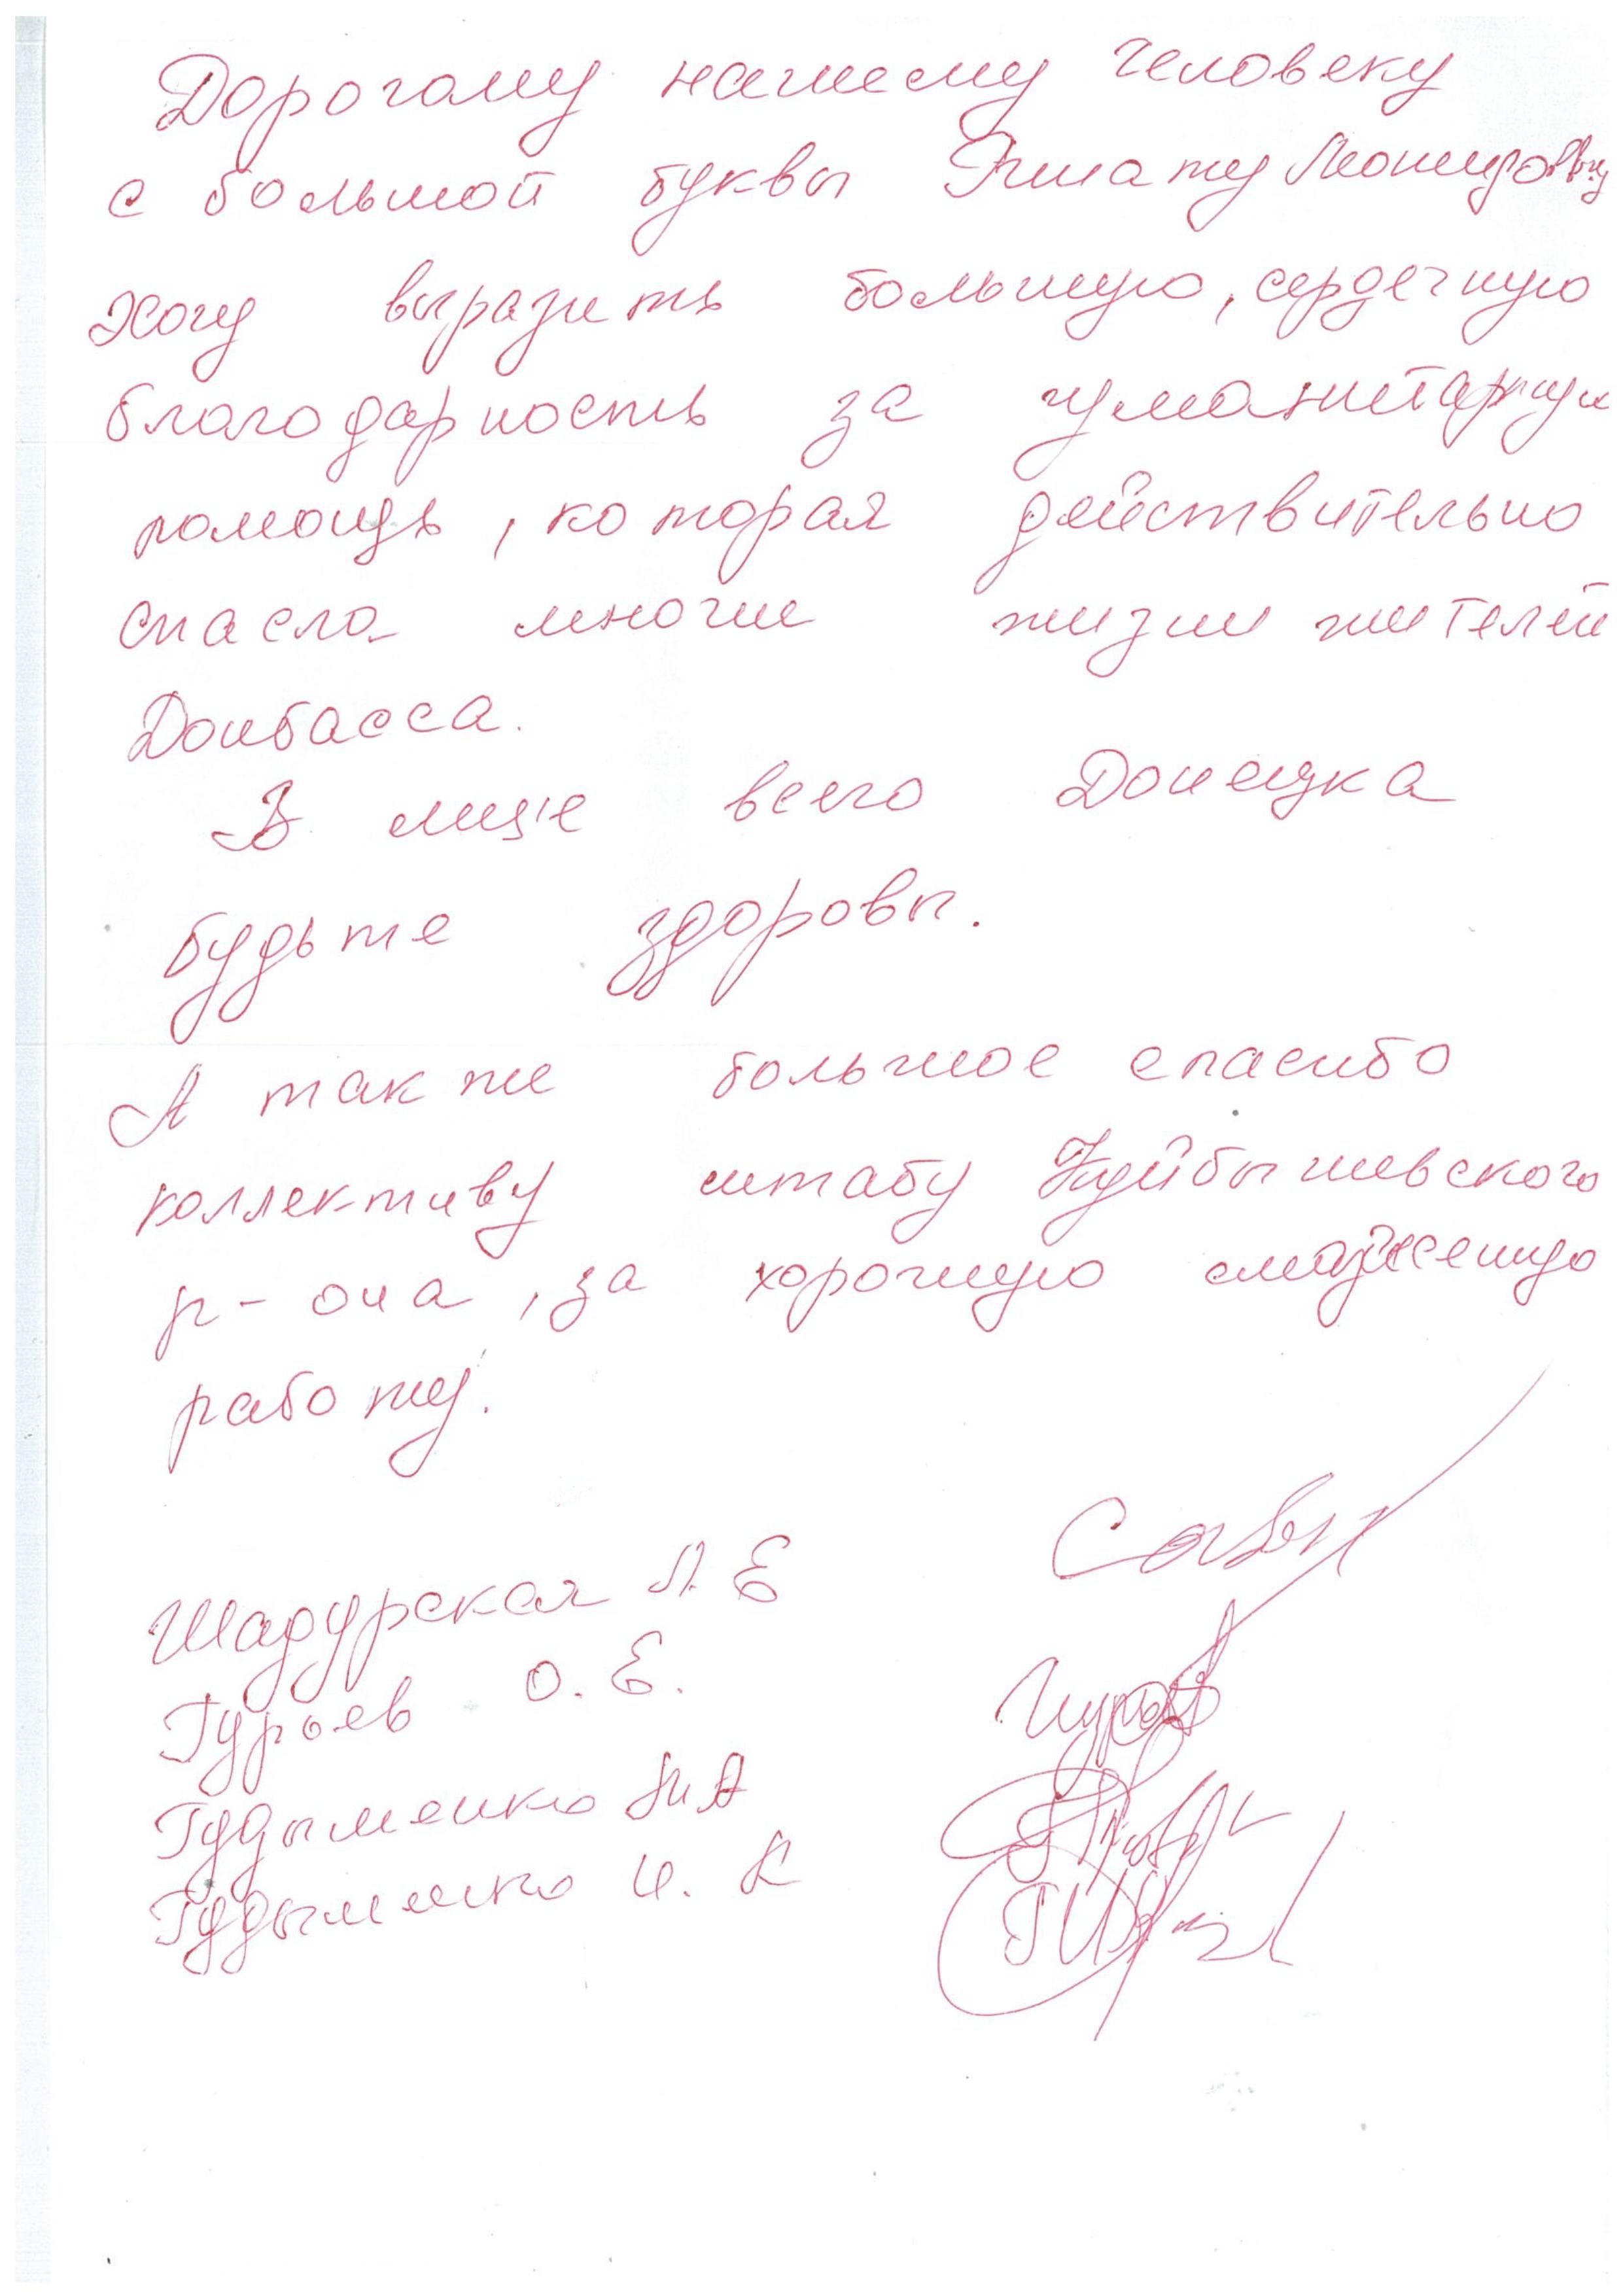 Дорогому нашему человеку
с большой буквы Ринату Леонидовичу
Хочу выразить большую, сердечную
благодарность за гуманитарную
помощь, которая действительно
спасла многие жизни жителей
Донбасса.
В лице всего Донецка
будьте здоровы.
А так же большое спасибо
коллективу штабу Куйбышевского
р-она, за хорошую слаженную
работу.
Шадурская Л. Е
Гурьев О. Е.
Гудыменко
Гудыменко И. К